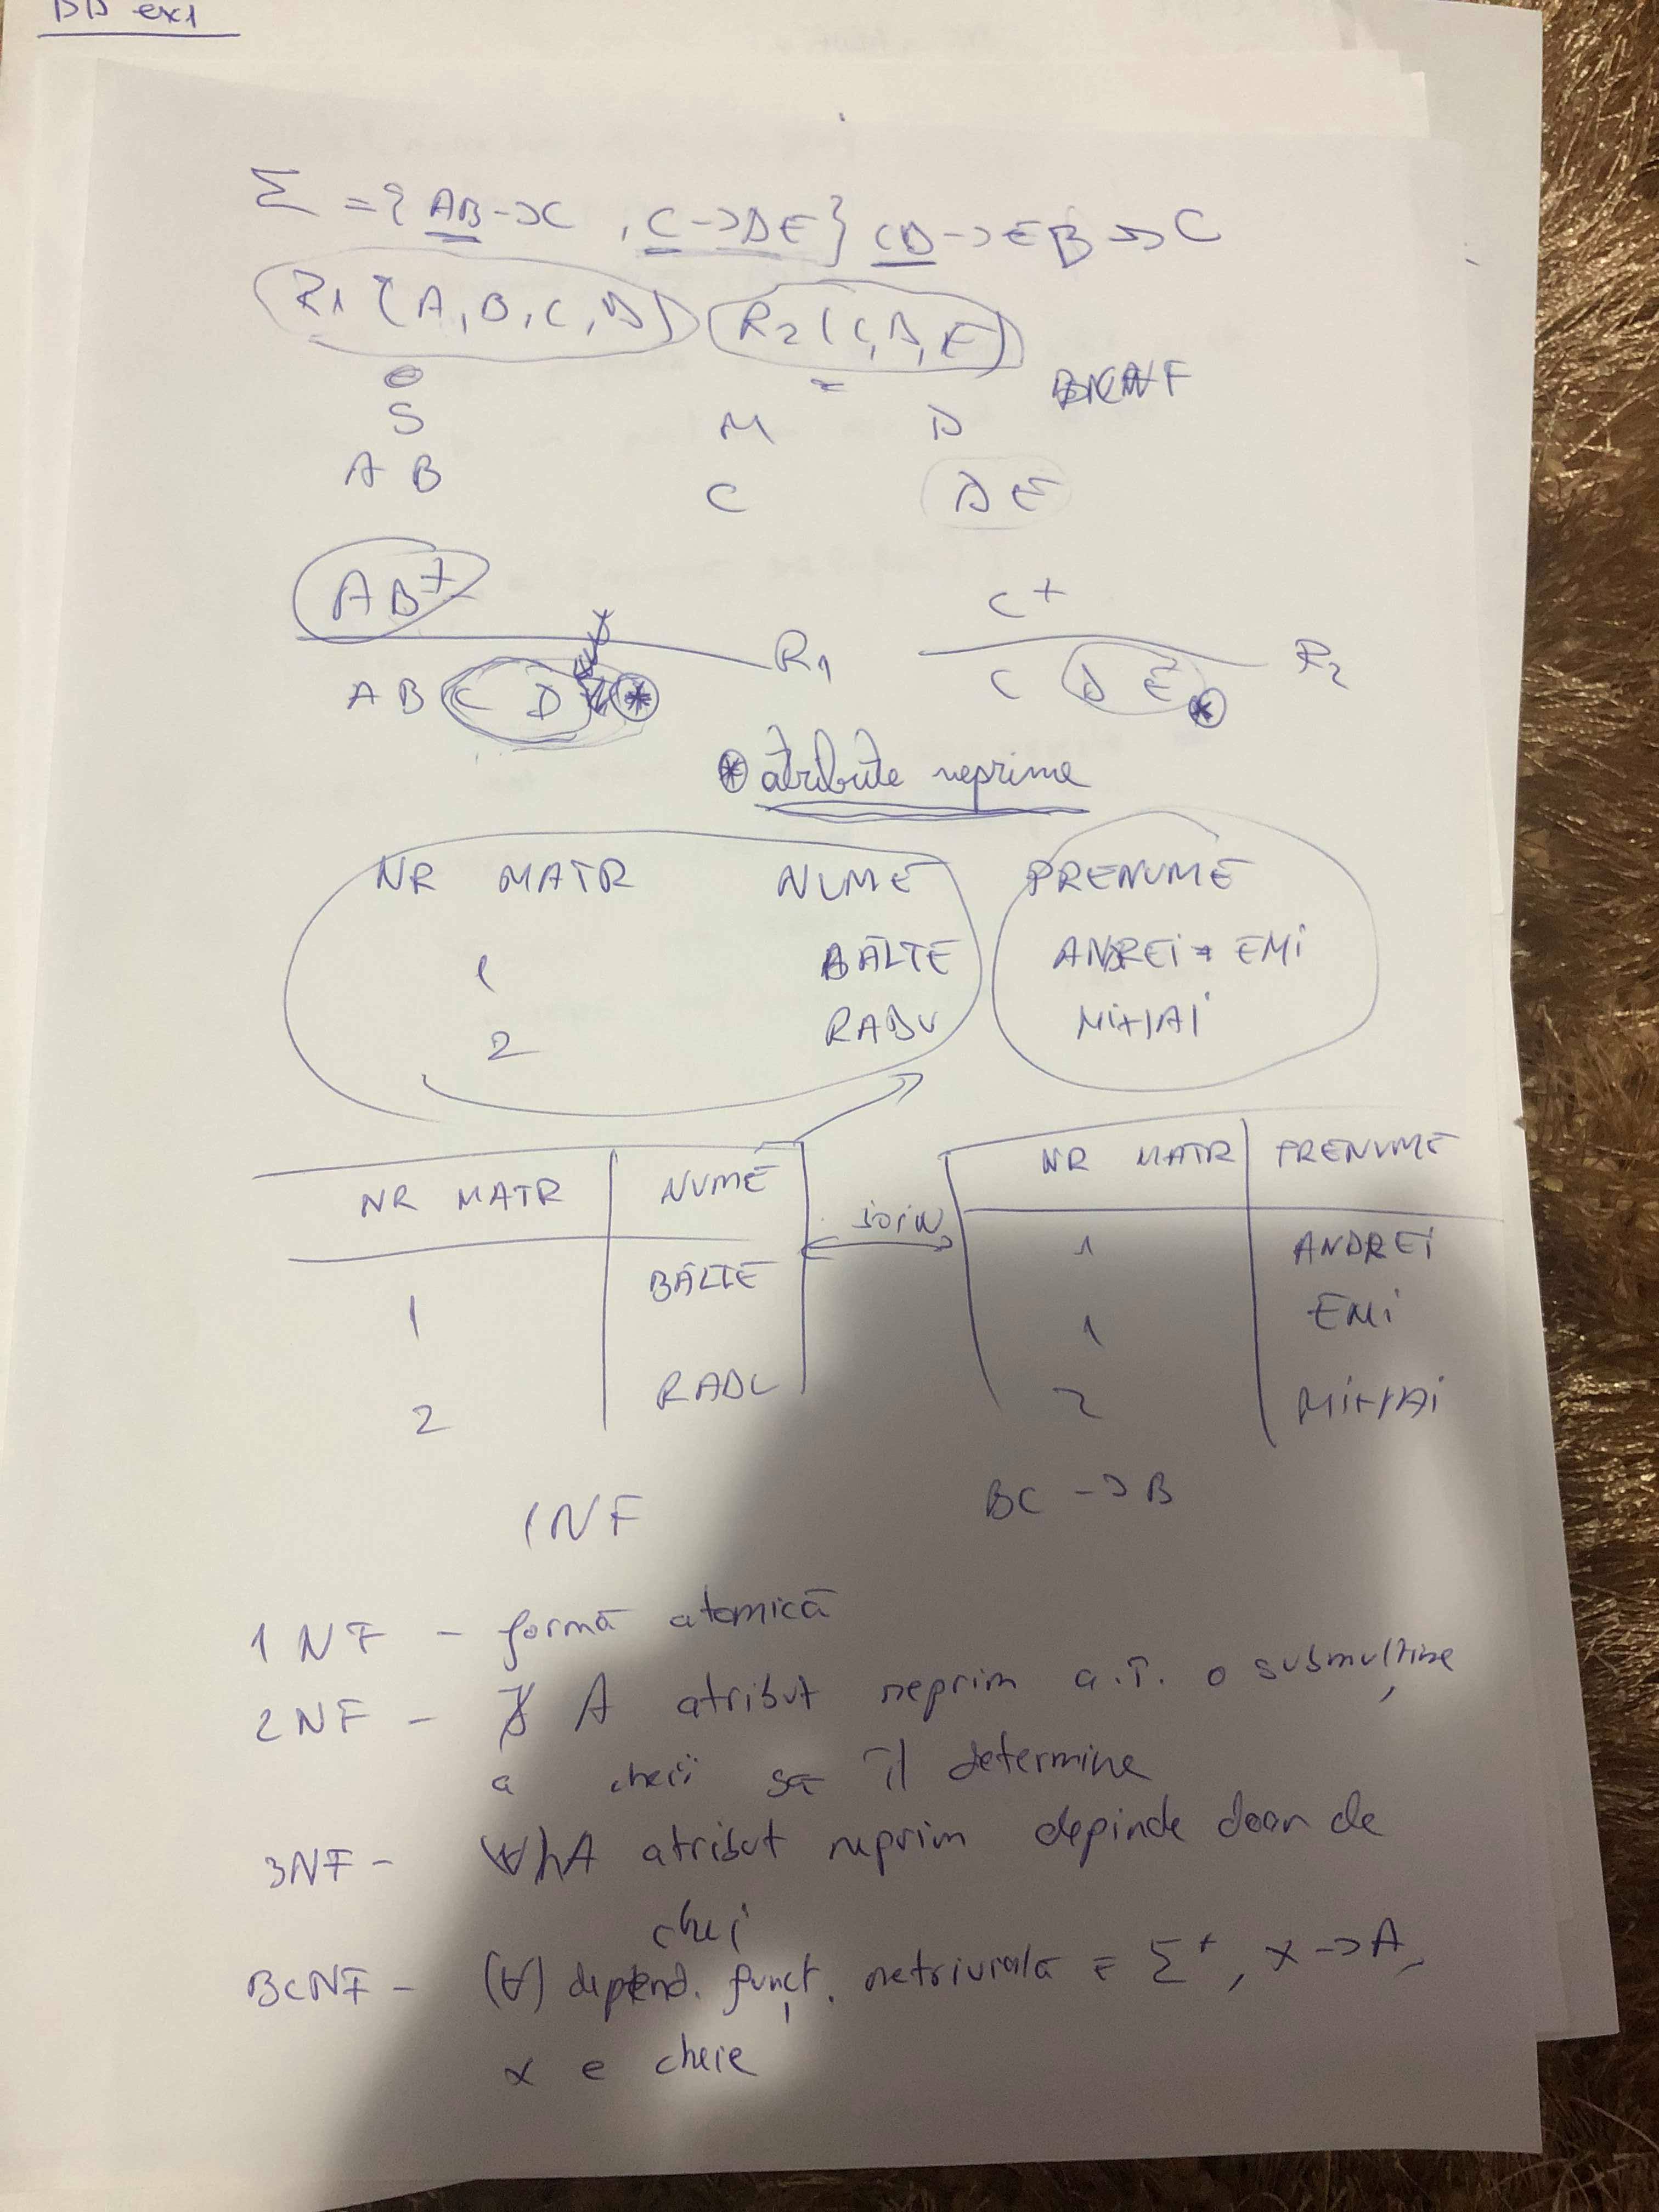 BD ex1
Σ = { AB → C , C → DE } CD → E B ↠ C
R1 (A, B, C, D) R2 (C, D, E)
BCNF
S M D
A B C D E
AB+ C+
A B C D * R1 C D E * R2
* atribute neprime
NR MATR NUME PRENUME
1 BÂLTE ANDREI EMI
2 RADU MIHAI
NR MATR NUME join NR MATR PRENUME
1 BÂLTE 1 ANDREI
1 EMI
2 RADU 2 MIHAI
1NF BC → B
1NF - formă atomică
2NF - ∄ A atribut neprim a.î. o submulțime
a cheii să îl determine
3NF - ∀ A atribut neprim depinde doar de
chei
BCNF - (∀) depend. funcț. netrivială ∈ Σ+, X → A,
X e cheie